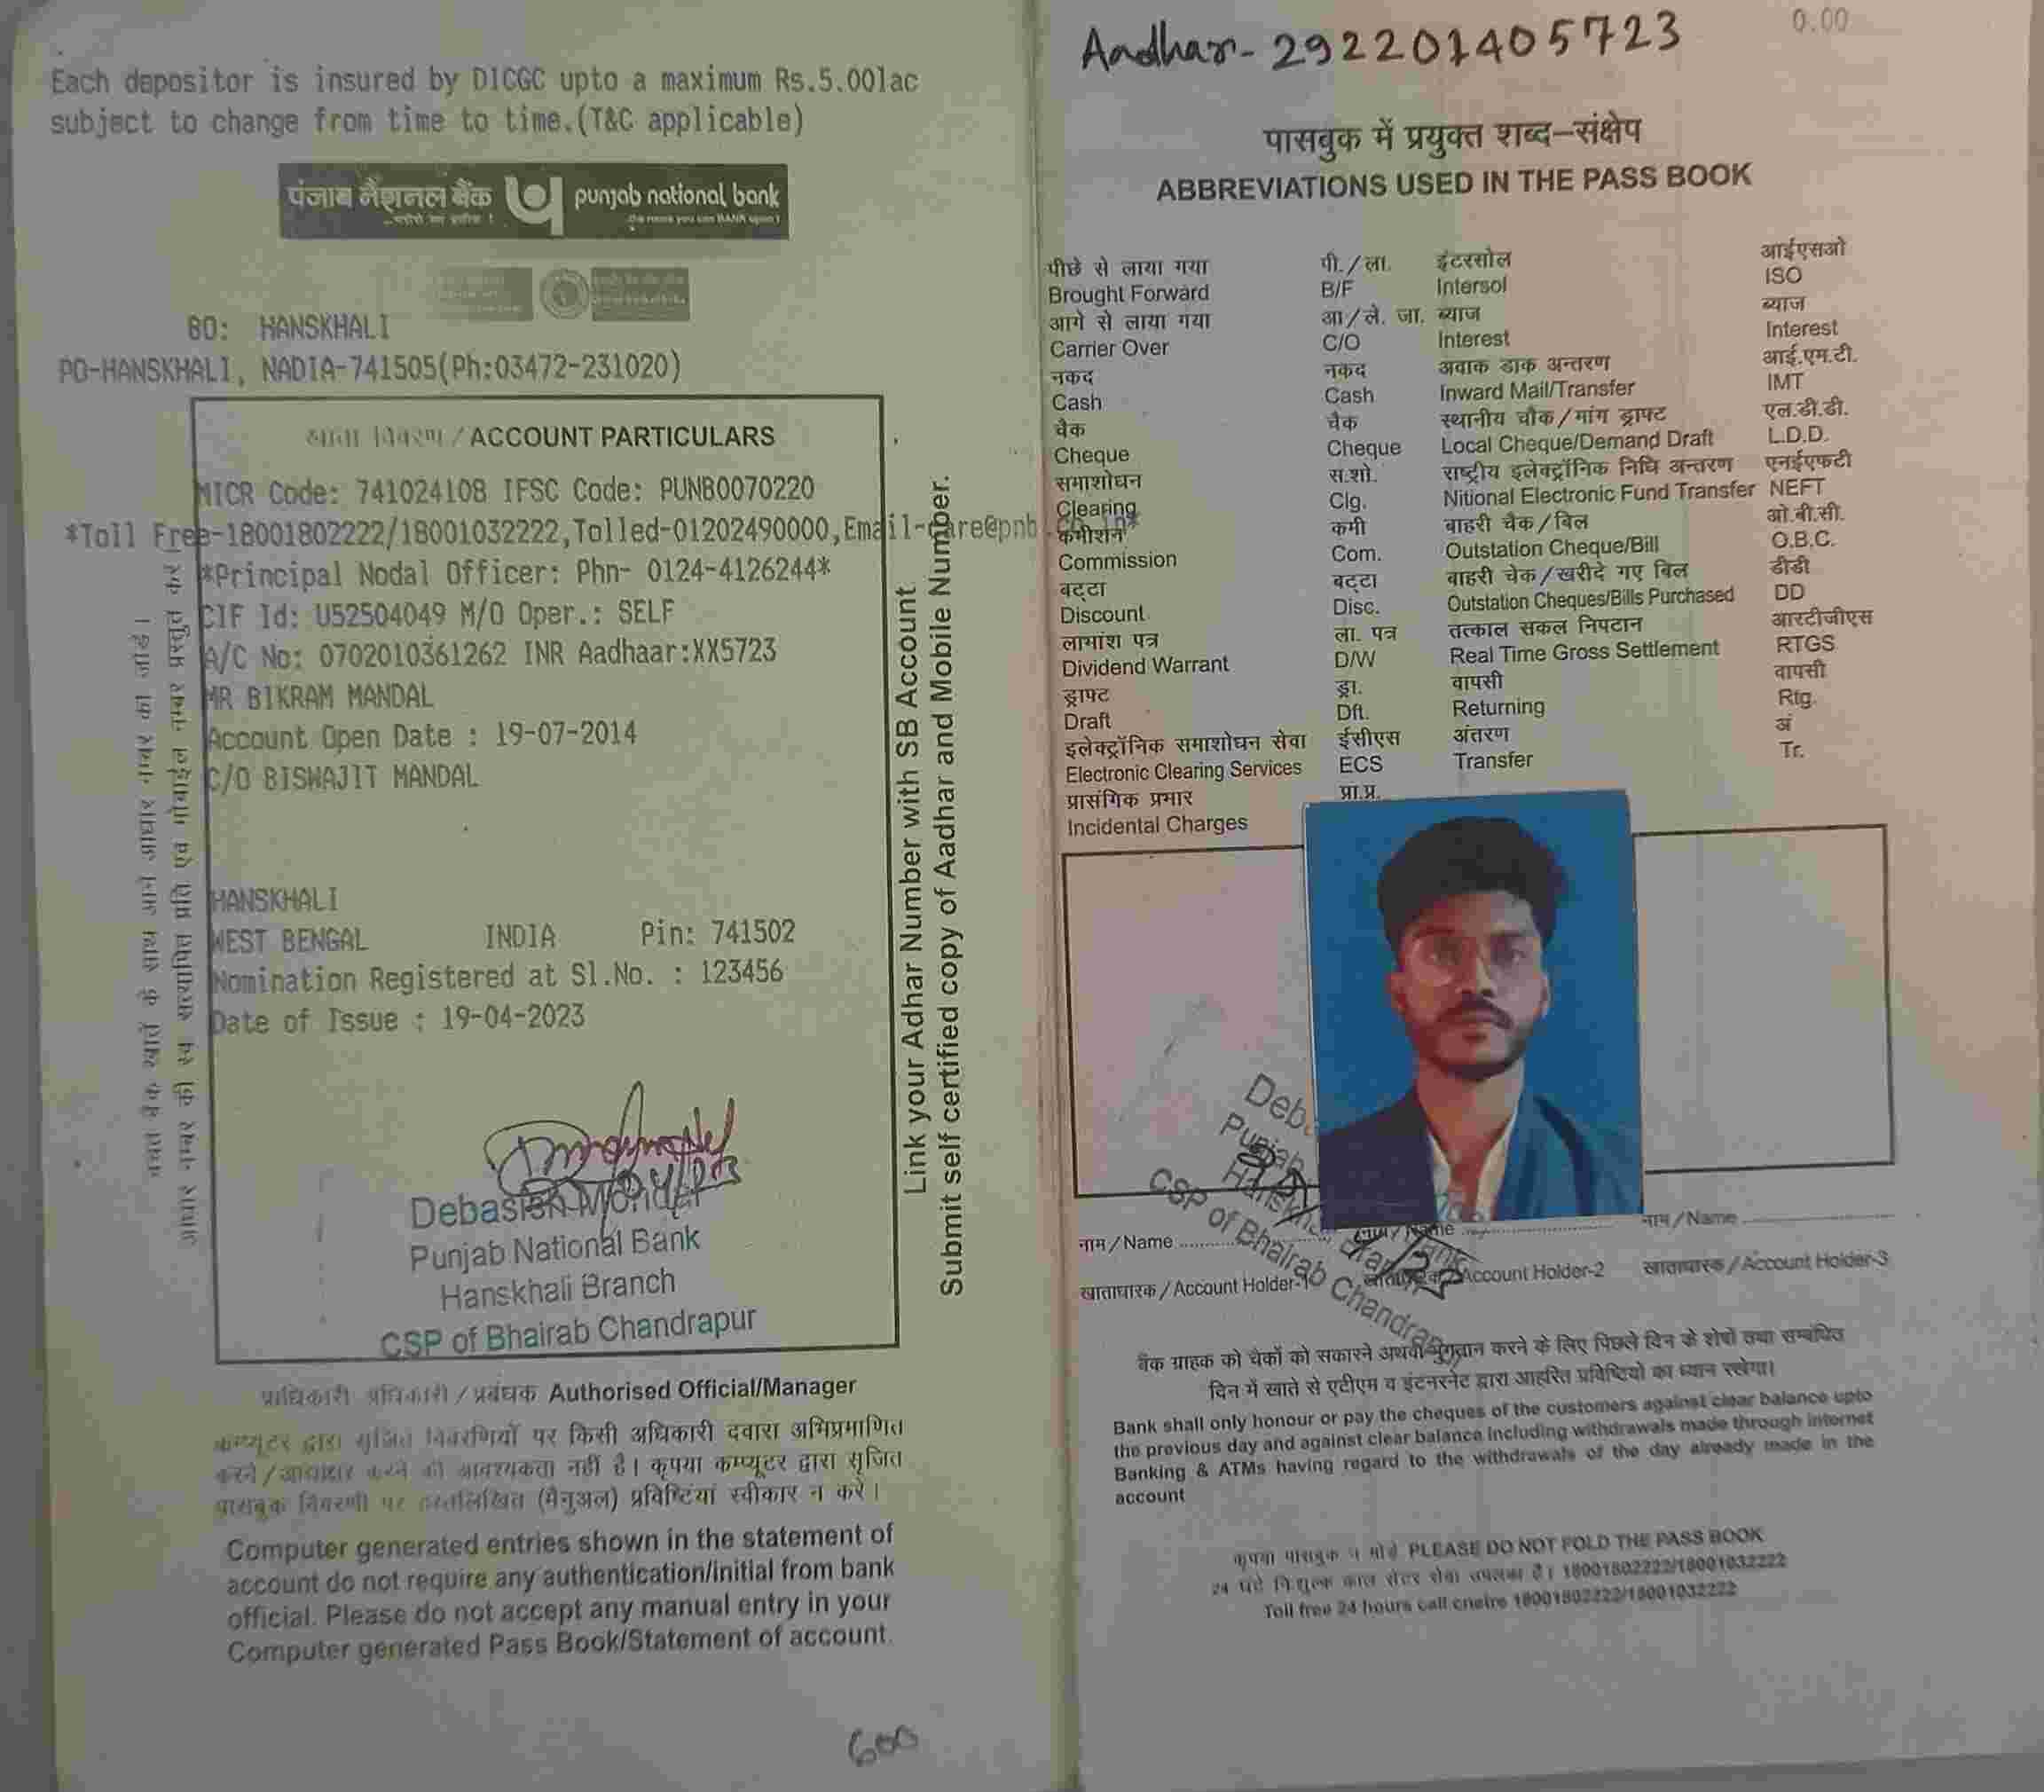 Each depositor is insured by DICGC upto a maximum Rs.5.00lac
subject to change from time to time.(T&C applicable)
पंजाब नैशनल बैंक punjab national bank
...भरोसे का प्रतीक ! ...the name you can BANK upon !
BO: HANSKHALI
PO-HANSKHALI, NADIA-741505(Ph:03472-231020)
खाता विवरण / ACCOUNT PARTICULARS
MICR Code: 741024108 IFSC Code: PUNB0070220
*Toll Free-18001802222/18001032222,Tolled-01202490000,Email-care@pnb.co.in*
*Principal Nodal Officer: Phn- 0124-4126244*
CIF Id: U52504049 M/O Oper.: SELF
A/C No: 0702010361262 INR Aadhaar:XX5723
MR BIKRAM MANDAL
Account Open Date : 19-07-2014
C/O BISWAJIT MANDAL
HANSKHALI
WEST BENGAL INDIA Pin: 741502
Nomination Registered at Sl.No. : 123456
Date of Issue : 19-04-2023
Debasish Mondal
Punjab National Bank
Hanskhali Branch
CSP of Bhairab Chandrapur
Link your Adhar Number with SB Account
Submit self certified copy of Aadhar and Mobile Number.
प्राधिकारी अधिकारी / प्रबंधक Authorised Official/Manager
कम्प्यूटर द्वारा सृजित विवरणियों पर किसी अधिकारी दवारा अभिप्रमाणित
करने/आद्याक्षर करने की आवश्यकता नहीं है। कृपया कम्प्यूटर द्वारा सृजित
पासबुक विवरणी पर हस्तलिखित (मैनुअल) प्रविष्टियां स्वीकार न करें।
Computer generated entries shown in the statement of
account do not require any authentication/initial from bank
official. Please do not accept any manual entry in your
Computer generated Pass Book/Statement of account.
600
Aadhar- 292201405723
0.00
पासबुक में प्रयुक्त शब्द-संक्षेप
ABBREVIATIONS USED IN THE PASS BOOK
पीछे से लाया गया पी./ला. इंटरसोल आईएसओ
Brought Forward B/F Intersol ISO
आगे से लाया गया आ/ले. जा. ब्याज ब्याज
Carrier Over C/O Interest Interest
नकद नकद अवाक डाक अन्तरण आई.एम.टी.
Cash Cash Inward Mail/Transfer IMT
चैक चैक स्थानीय चौक/मांग ड्राफ्ट एल.डी.डी.
Cheque Cheque Local Cheque/Demand Draft L.D.D.
समाशोधन स.शो. राष्ट्रीय इलेक्ट्रॉनिक निधि अन्तरण एनईएफटी
Clearing Clg. Nitional Electronic Fund Transfer NEFT
कमीशन कमी बाहरी चैक/बिल ओ.बी.सी.
Commission Com. Outstation Cheque/Bill O.B.C.
बट्टा बट्टा बाहरी चेक/खरीदे गए बिल डीडी
Discount Disc. Outstation Cheques/Bills Purchased DD
लाभांश पत्र ला. पत्र तत्काल सकल निपटान आरटीजीएस
Dividend Warrant D/W Real Time Gross Settlement RTGS
ड्राफ्ट ड्रा. वापसी वापसी
Draft Dft. Returning Rtg.
इलेक्ट्रॉनिक समाशोधन सेवा ईसीएस अंतरण अं
Electronic Clearing Services ECS Transfer Tr.
प्रासंगिक प्रभार प्रा.प्र.
Incidental Charges
Punjab
CSP of Bhairab Chandrap
नाम/Name नाम/Name नाम/Name
खाताधारक/Account Holder-1 खाताधारक/Account Holder-2 खाताधारक/Account Holder-3
बैंक ग्राहक को चैकों को सकारने अथवा भुगतान करने के लिए पिछले दिन के शेषों तथा सम्बंधित
दिन में खाते से एटीएम व इंटनरनेट द्वारा आहरित प्रविष्टियो का ध्यान रखेगा।
Bank shall only honour or pay the cheques of the customers against clear balance upto
the previous day and against clear balance including withdrawals made through internet
Banking & ATMs having regard to the withdrawals of the day already made in the
account
कृपया पासबुक न मोड़ें PLEASE DO NOT FOLD THE PASS BOOK
24 घंटे निःशुल्क काल सेंटर सेवा उपलब्ध है। 18001802222/18001032222
Toll free 24 hours call cneire 18001802222/18001032222